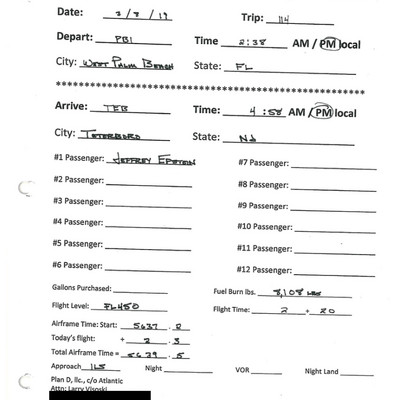 Date: 2/7/19 Trip: 114
Depart: PBI Time 2:38 AM / PM local
City: WEST PALM BEACH State: FL
**********************************************
Arrive: TEB Time: 4:58 AM / PM local
City: TETERBORO State: NJ
#1 Passenger: JEFFREY EPSTEIN #7 Passenger:
#2 Passenger: #8 Passenger:
#3 Passenger: #9 Passenger:
#4 Passenger: #10 Passenger:
#5 Passenger: #11 Passenger:
#6 Passenger: #12 Passenger:
Gallons Purchased: Fuel Burn lbs. 8,108 LBS
Flight Level: FL450 Flight Time: 2 + 20
Airframe Time: Start: 5637.2
Today's flight: + 2.3
Total Airframe Time = 5639.5
Approach ILS Night VOR Night Land
Plan D, llc, c/o Atlantic
Attn: Larry Visoski